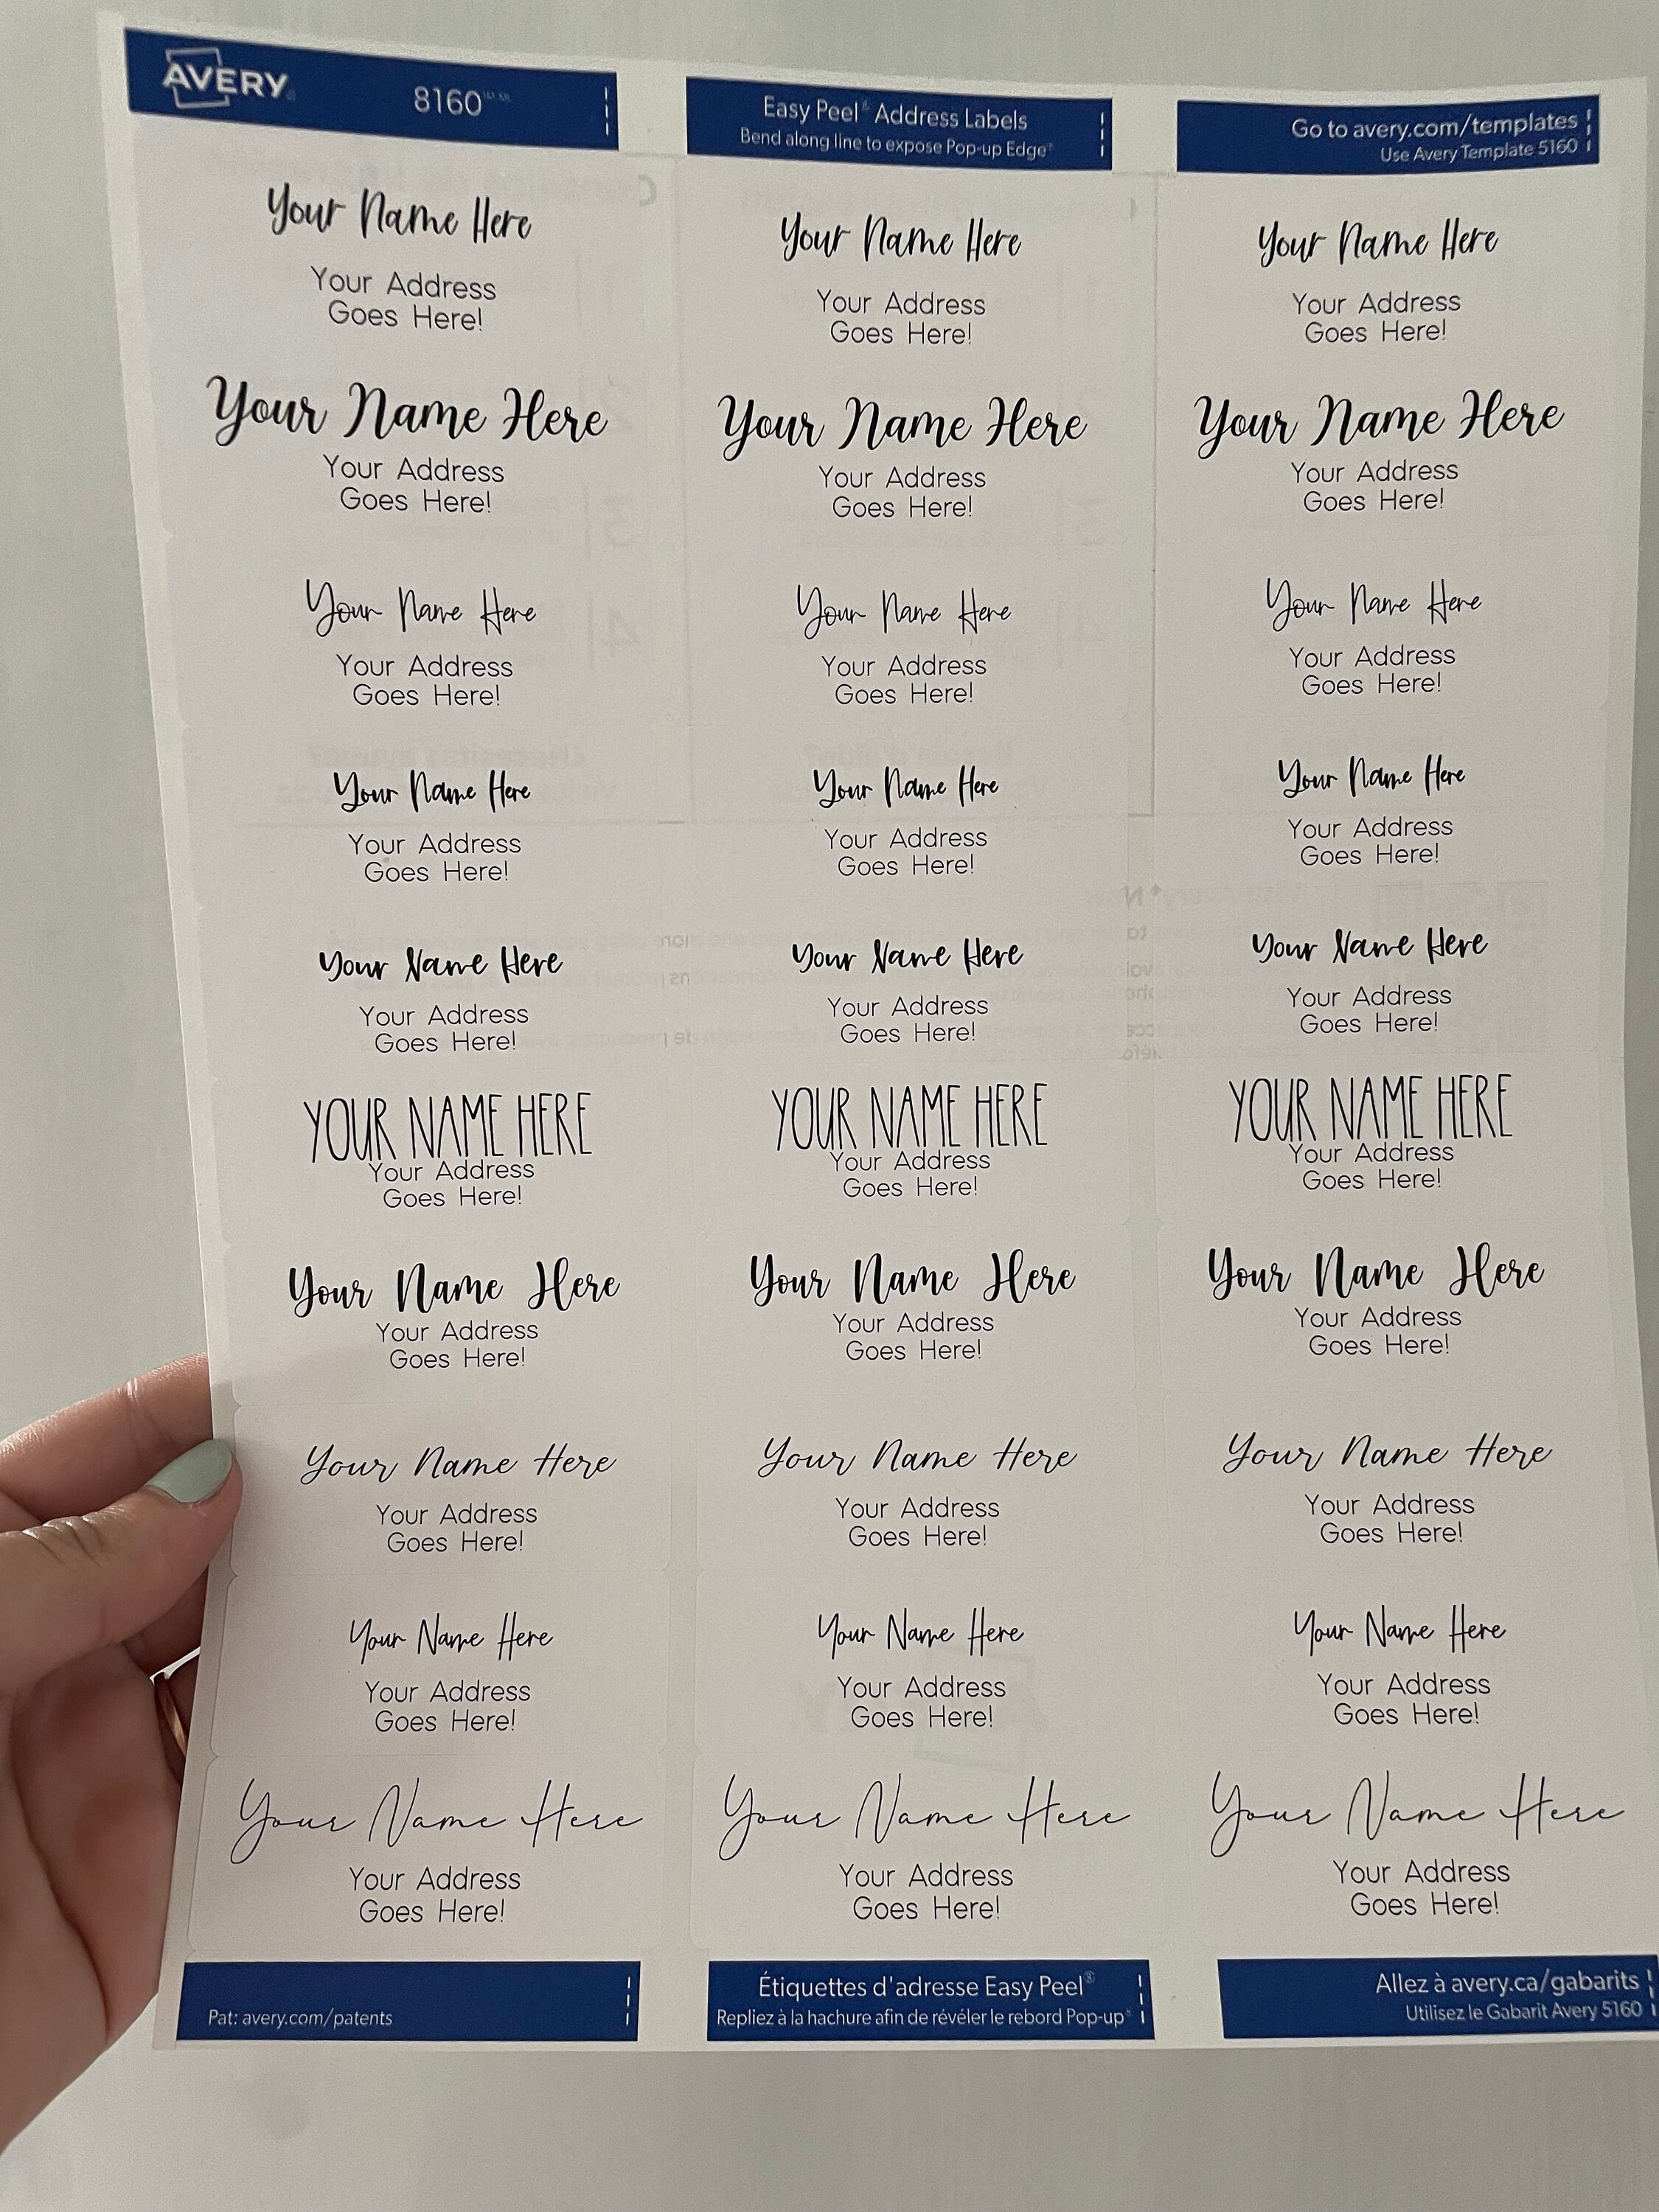 AVERY 8160
Easy Peel® Address Labels
Bend along line to expose Pop-up Edge®
Go to avery.com/templates
Use Avery Template 5160
Your Name Here
Your Address
Goes Here!
Your Name Here
Your Address
Goes Here!
Your Name Here
Your Address
Goes Here!
Your Name Here
Your Address
Goes Here!
Your Name Here
Your Address
Goes Here!
Your Name Here
Your Address
Goes Here!
Your Name Here
Your Address
Goes Here!
Your Name Here
Your Address
Goes Here!
Your Name Here
Your Address
Goes Here!
Your Name Here
Your Address
Goes Here!
Your Name Here
Your Address
Goes Here!
Your Name Here
Your Address
Goes Here!
Your Name Here
Your Address
Goes Here!
Your Name Here
Your Address
Goes Here!
Your Name Here
Your Address
Goes Here!
YOUR NAME HERE
Your Address
Goes Here!
YOUR NAME HERE
Your Address
Goes Here!
YOUR NAME HERE
Your Address
Goes Here!
Your Name Here
Your Address
Goes Here!
Your Name Here
Your Address
Goes Here!
Your Name Here
Your Address
Goes Here!
Your Name Here
Your Address
Goes Here!
Your Name Here
Your Address
Goes Here!
Your Name Here
Your Address
Goes Here!
Your Name Here
Your Address
Goes Here!
Your Name Here
Your Address
Goes Here!
Your Name Here
Your Address
Goes Here!
Your Name Here
Your Address
Goes Here!
Your Name Here
Your Address
Goes Here!
Your Name Here
Your Address
Goes Here!
Pat: avery.com/patents
Étiquettes d'adresse Easy Peel®
Repliez à la hachure afin de révéler le rebord Pop-up®
Allez à avery.ca/gabarits
Utilisez le Gabarit Avery 5160